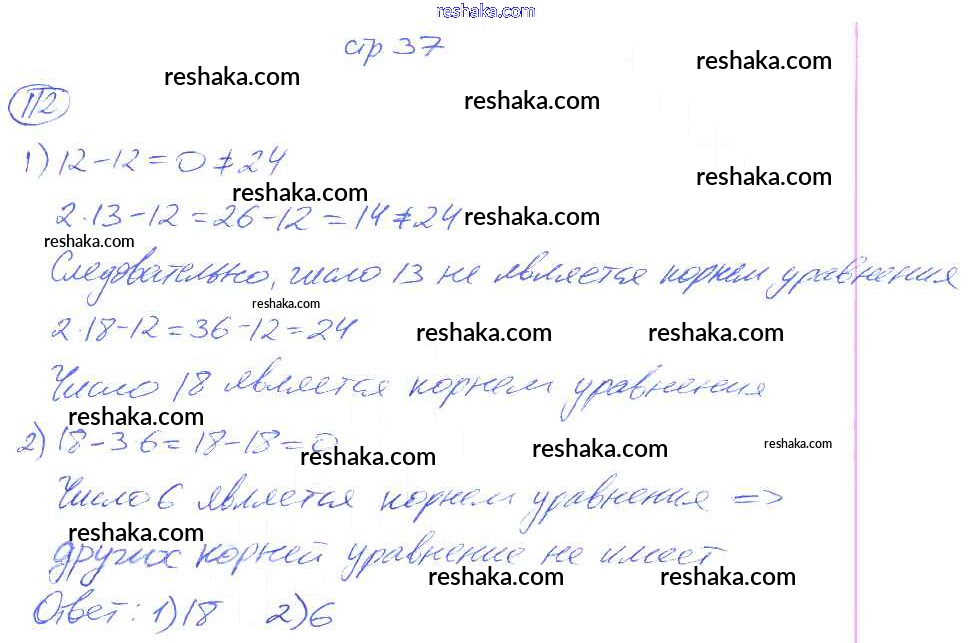 reshaka.com
стр 37
reshaka.com
reshaka.com
reshaka.com
112
1) 12-12=0≠24
reshaka.com
reshaka.com
2·13-12=26-12=14≠24
reshaka.com
reshaka.com
Следовательно, число 13 не является корнем уравнения
reshaka.com
2·18-12=36-12=24
reshaka.com
reshaka.com
Число 18 является корнем уравнения
reshaka.com
2) 18-3·6=18-18=0
reshaka.com
reshaka.com
reshaka.com
Число 6 является корнем уравнения =>
reshaka.com
других корней уравнение не имеет
reshaka.com
reshaka.com
Ответ: 1) 18 2) 6